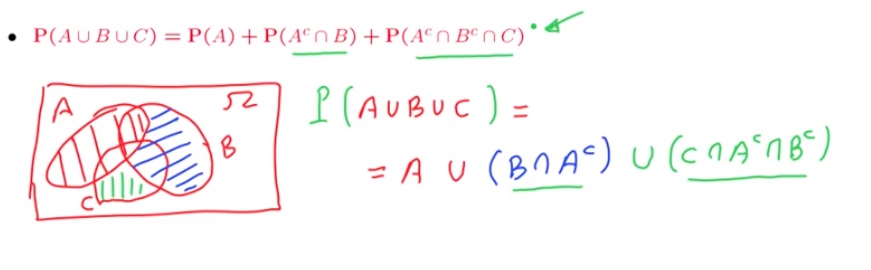 • P(A ∪ B ∪ C) = P(A) + P(Aᶜ ∩ B) + P(Aᶜ ∩ Bᶜ ∩ C)
A
Ω
B
C
P(A∪B∪C) =
= A ∪ (B∩Aᶜ) ∪ (C∩Aᶜ∩Bᶜ)